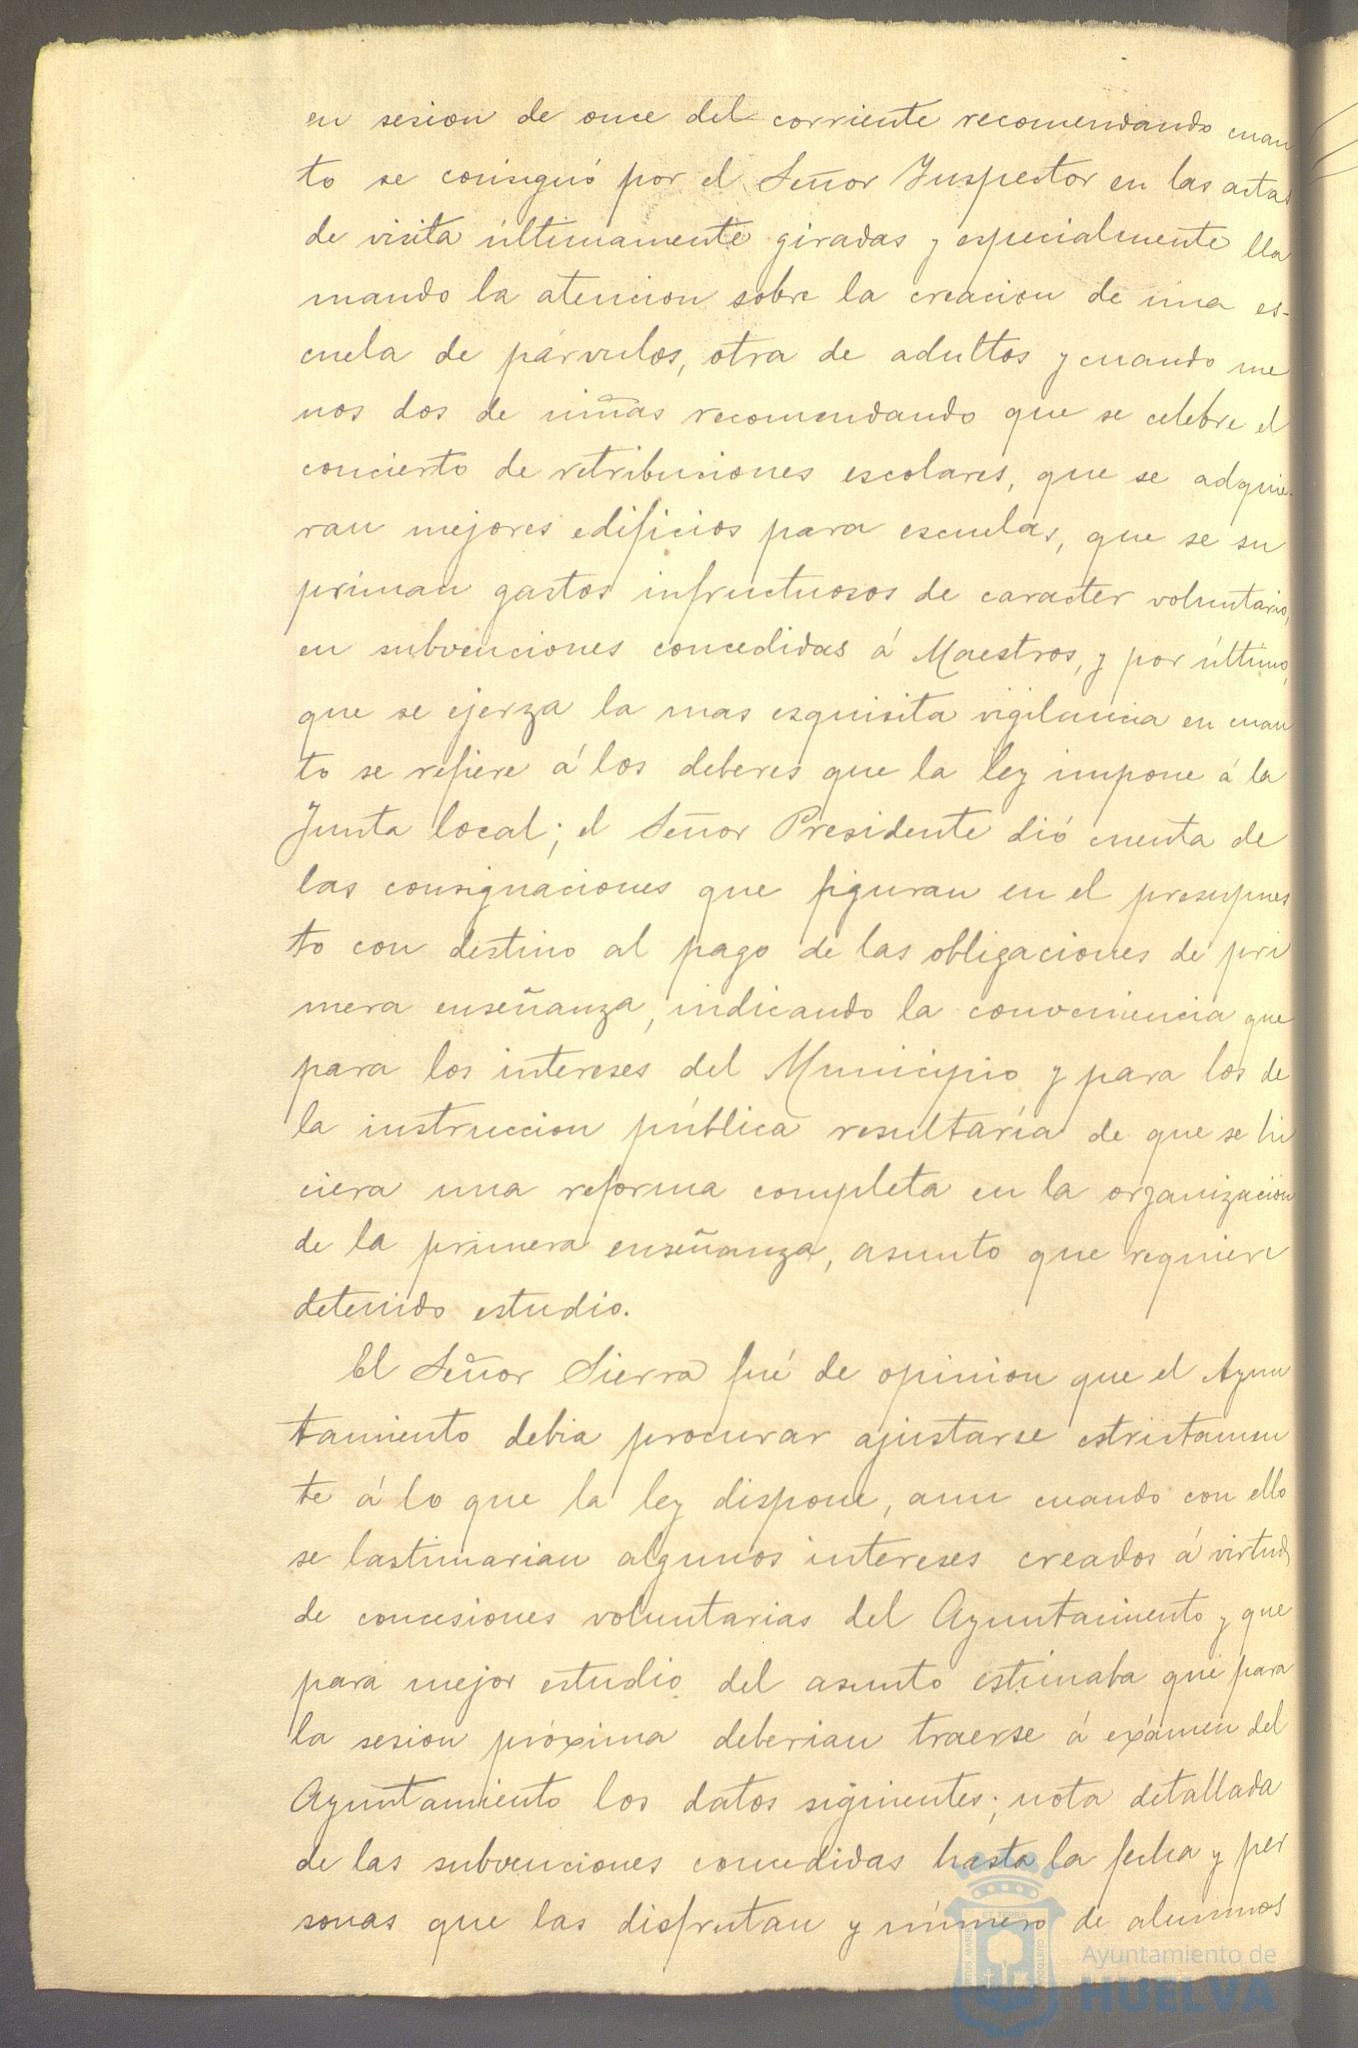 en sesion de once del corriente recomendando cuan
to se consignó por el Señor Inspector en las actas
de visita últimamente giradas y especialmente lla
mando la atencion sobre la creacion de una es-
cuela de párvulos, otra de adultos y cuando me
nos dos de niñas recomendando que se celebre el
concierto de retribuciones escolares, que se adquie-
ran mejores edificios para escuelas, que se su
priman gastos infructuosos de caracter voluntario,
en subvenciones concedidas á Maestros, y por último,
que se ejerza la mas esquisita vigilancia en cuan
to se refiere á los deberes que la ley impone á la
Junta local; el Señor Presidente dió cuenta de
las consignaciones que figuran en el presupues
to con destino al pago de las obligaciones de pri
mera enseñanza, indicando la conveniencia que
para los intereses del Municipio y para los de
la instruccion pública resultaría de que se hi
ciera una reforma completa en la organizacion
de la primera enseñanza, asunto que requiere
detenido estudio.
El Señor Sierra fué de opinion que el Ayun
tamiento debia procurar ajustarse estrictamen
te á lo que la ley dispone, aun cuando con ello
se lastimarian algunos intereses creados á virtud
de concesiones voluntarias del Ayuntamiento y que
para mejor estudio del asunto estimaba que para
la sesion próxima deberian traerse á exámen del
Ayuntamiento los datos siguientes; nota detallada
de las subvenciones concedidas hasta la fecha y per
sonas que las disfrutan y número de alumnos
Ayuntamiento de
HUELVA